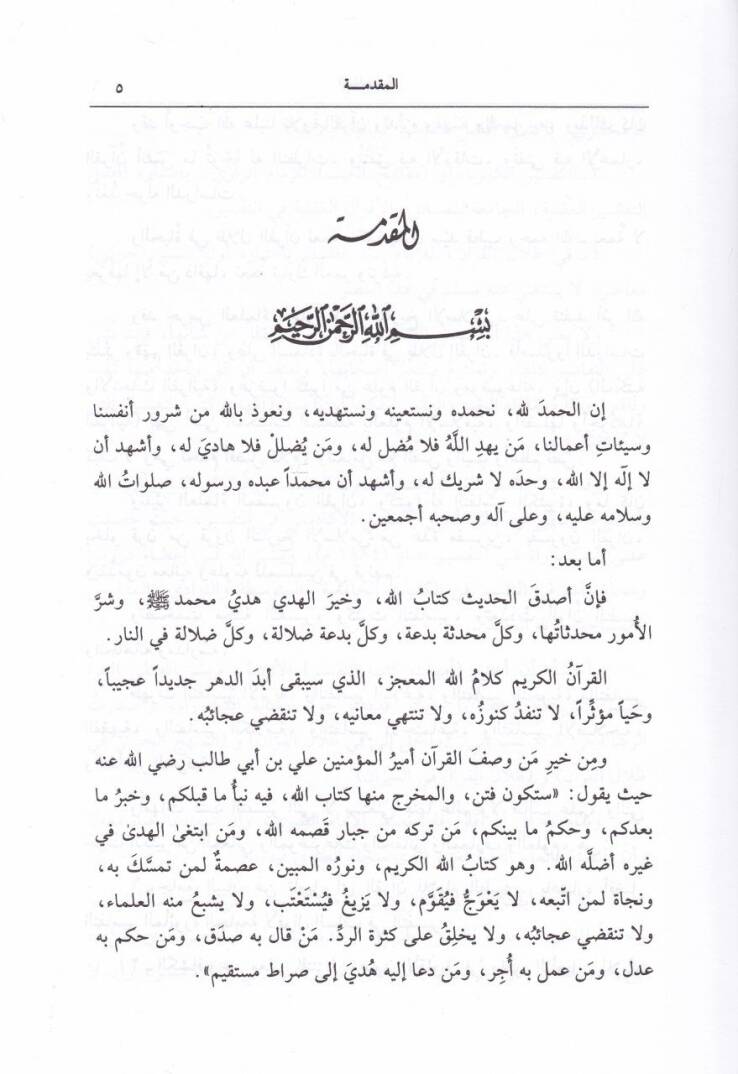 المقدمـــة ٥
المقدمة
بِسْمِ اللهِ الرَّحْمٰنِ الرَّحِيْمِ
إن الحمدَ لله، نحمده ونستعينه ونستهديه، ونعوذ بالله من شرور أنفسنا
وسيئاتِ أعمالنا، مَن يهدِ اللَّهُ فلا مُضل له، ومَن يُضللْ فلا هاديَ له، وأشهد أن
لا إلٰه إلا الله، وحدَه لا شريك له، وأشهد أن محمداً عبده ورسوله، صلواتُ الله
وسلامه عليه، وعلى آله وصحبه أجمعين.
أما بعد:
فإنَّ أصدقَ الحديث كتابُ الله، وخيرَ الهدي هديُ محمد ﷺ، وشرَّ
الأُمور محدثاتُها، وكلَّ محدثة بدعة، وكلَّ بدعة ضلالة، وكلَّ ضلالة في النار.
القرآنُ الكريم كلامُ الله المعجز، الذي سيبقى أبدَ الدهر جديداً عجيباً،
وحَياً مؤثِّراً، لا تنفدُ كنوزُه، ولا تنتهي معانيه، ولا تنقضي عجائبُه.
ومِن خيرِ مَن وصفَ القرآن أميرُ المؤمنين علي بن أبي طالب رضي الله عنه
حيث يقول: «ستكون فتن، والمخرج منها كتاب الله، فيه نبأُ ما قبلكم، وخبرُ ما
بعدكم، وحكمُ ما بينكم، مَن تركه من جبار قَصمه الله، ومَن ابتغىٰ الهدىٰ في
غيره أضلَّه الله. وهو كتابُ الله الكريم، ونورُه المبين، عصمةٌ لمن تمسَّك به،
ونجاة لمن اتّبعه، لا يَعْوَجُّ فيُقوَّم، ولا يَزيغُ فيُسْتَعْتَب، ولا يشبعُ منه العلماء،
ولا تنقضي عجائبُه، ولا يخلِقُ على كثرة الردِّ. مَنْ قال به صدَق، ومَن حكم به
عدل، ومَن عمل به أُجِر، ومَن دعا إليه هُديَ إلى صراط مستقيم».